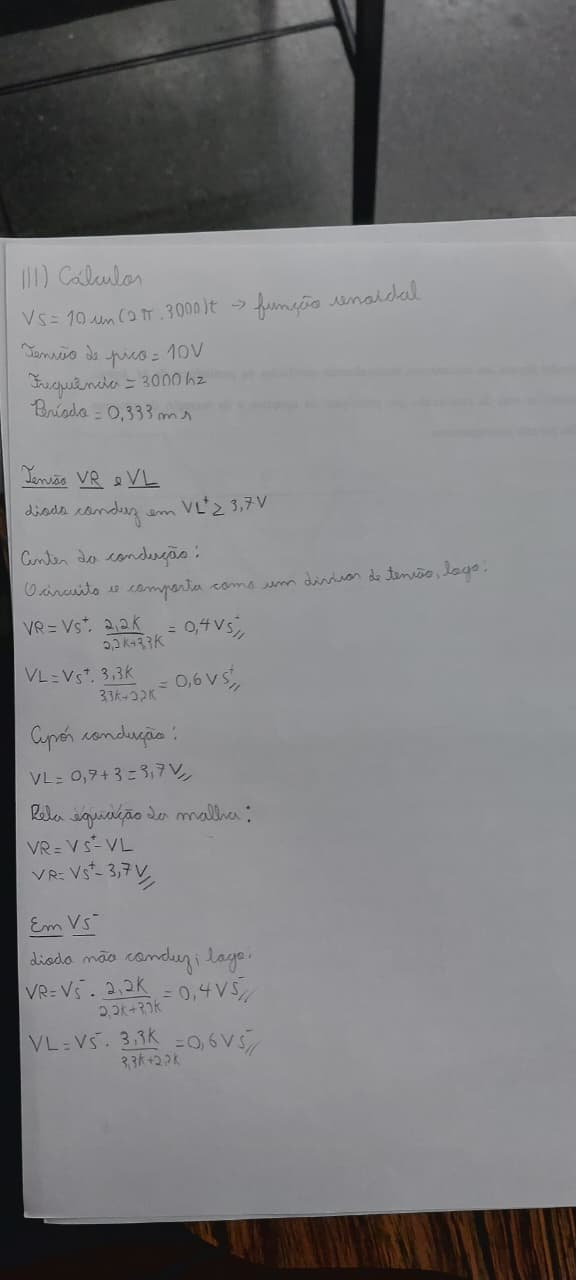 III) Cálculos
VS = 10 sen(2π.3000)t → função senoidal
Tensão de pico = 10V
Frequência = 3000hz
Período = 0,333 ms
Tensão VR e VL
diodo conduz em VL⁺ ≥ 3,7V
Antes da condução:
O circuito se comporta como um divisor de tensão, logo:
VR = VS⁺. 2,2K / 2,2K+3,3K = 0,4VS⁺//
VL = VS⁺. 3,3K / 3,3K+2,2K = 0,6VS⁺//
Após condução:
VL = 0,7 + 3 = 3,7V//
Pela equação da malha:
VR = VS⁺ - VL
VR = VS⁺ - 3,7V//
Em VS⁻
diodo não conduz, logo:
VR = VS⁻ . 2,2K / 2,2K+3,3K = 0,4VS⁻//
VL = VS⁻ . 3,3K / 3,3K+2,2K = 0,6VS⁻//